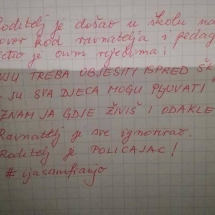 Roditelj je došao u školu na
kod ravnatelja i pedag
je ovim riječima:
TREBA OBJESITI ISPRED ŠK
SU SVA DJECA MOGU PLJUVATI.
ZNAM JA GDJE ŽIVIŠ I ODAKLE
Ravnatelj je sve ignorirao.
Roditelj je POLICAJAC!